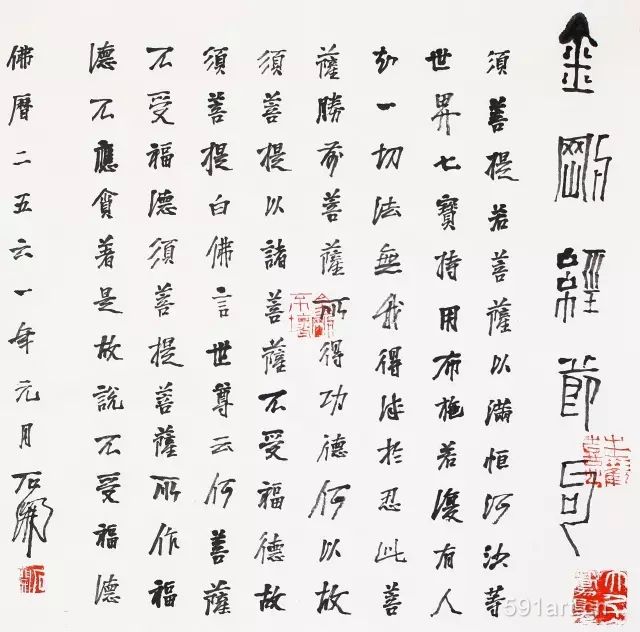 金剛經節
須菩提若菩薩以滿恒河沙等
世界七寶持用布施若復有人
知一切法無我得成於忍此菩
薩勝前菩薩所得功德何以故
須菩提以諸菩薩不受福德故
須菩提白佛言世尊云何菩薩
不受福德須菩提菩薩所作福
德不應貪著是故說不受福德
佛曆二五六一年元月石
591art.cn